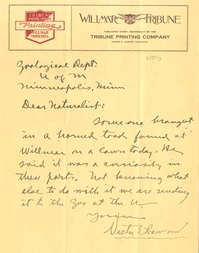 Printing
WILLMAR
MINNESOTA
WILLMAR TRIBUNE
TRIBUNE PRINTING COMPANY
Zoological Dept.
U of M
Minneapolis, Minn
Dear Naturalist:
Someone brought
in a horned toad found at
Willmar on a lawn today. He
said it was a curiosity in
these parts. Not knowing what
else to do with it we are sending
it to the Zoo at the U.
Yours
Victor